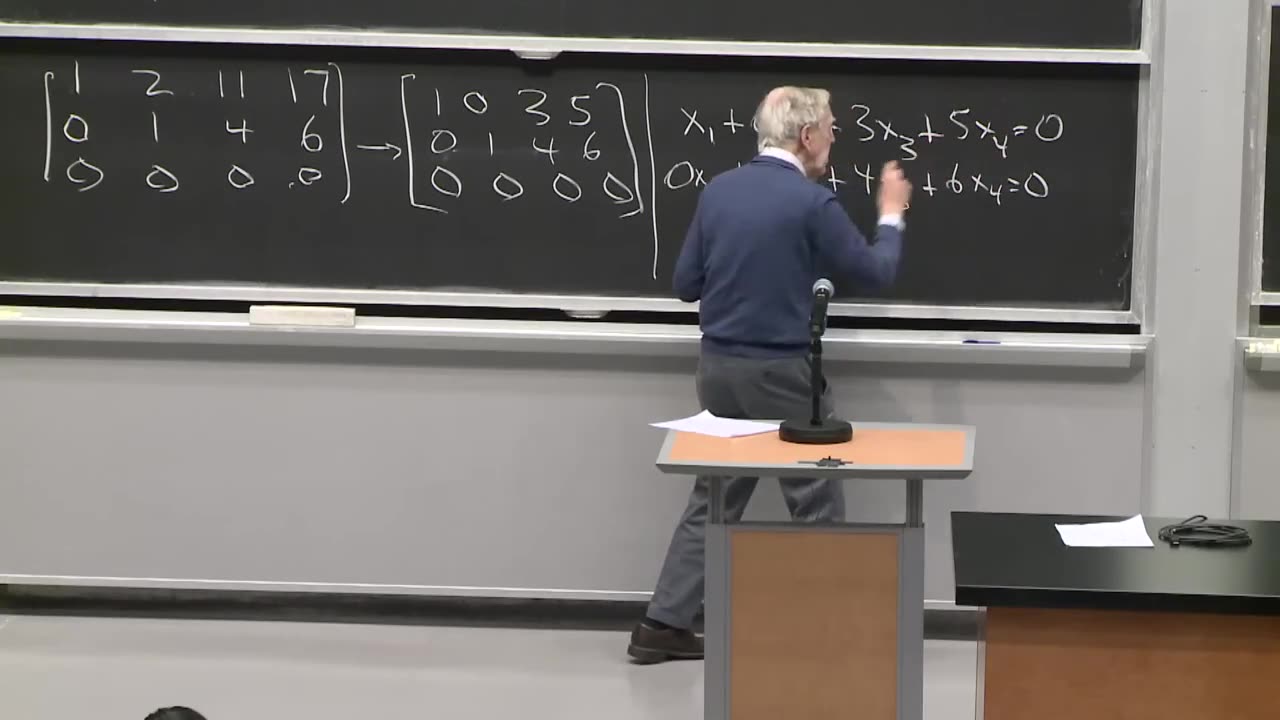 1 2 11 17
0 1 4 6
0 0 0 0
→
1 0 3 5
0 1 4 6
0 0 0 0
x₁+ + 3x₃+5x₄=0
0x + 4 + 6x₄=0